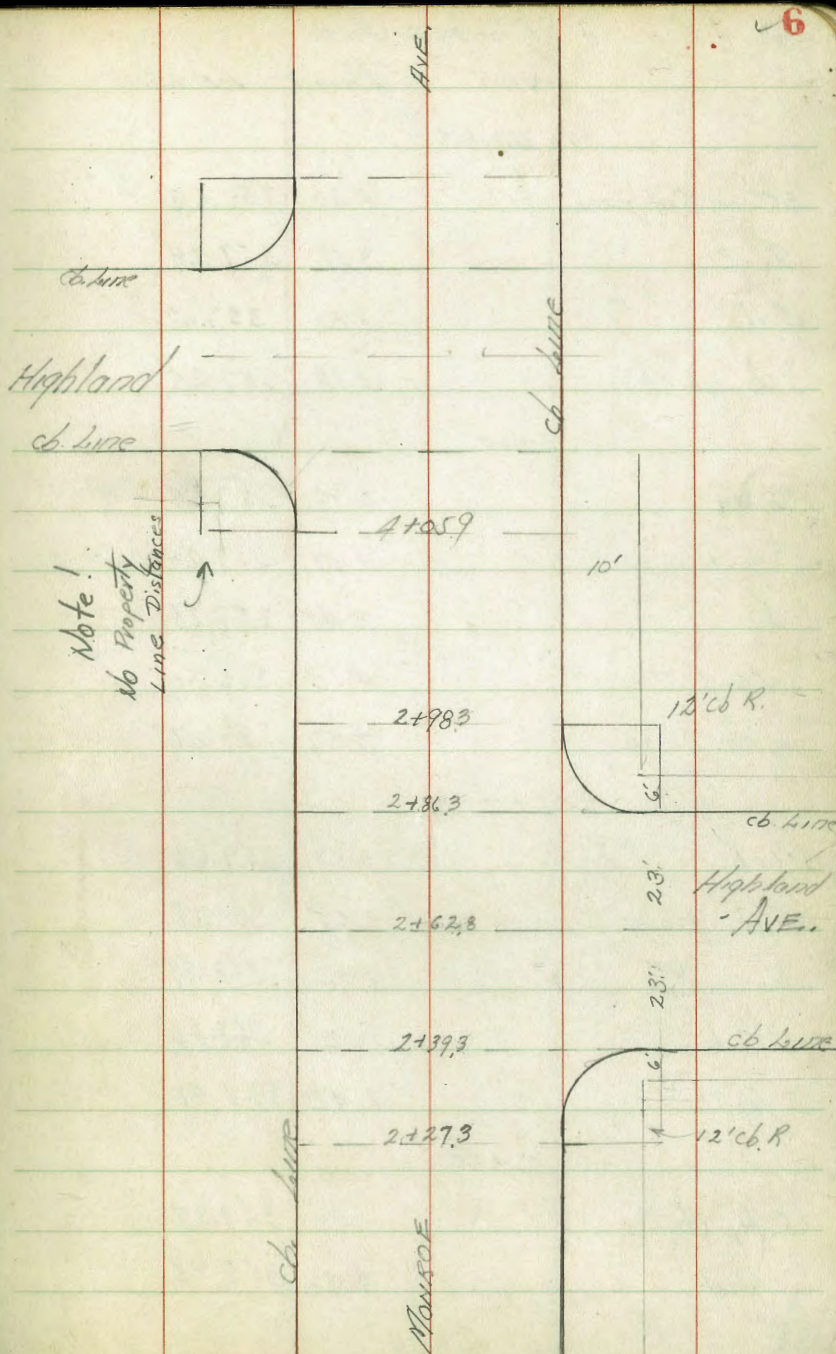 6
AVE.
cb. Line
Highland
cb. Line
cb Line
4+05.9
10'
Note!
No Property
Line Distances
2+98.3
12' cb R.
6'
2+86.3
cb. Line
23'
Highland
- AVE.
2+62.8
23'
2+39.3
cb Line
6'
2+27.3
12' cb. R
Cb. Line
MONROE